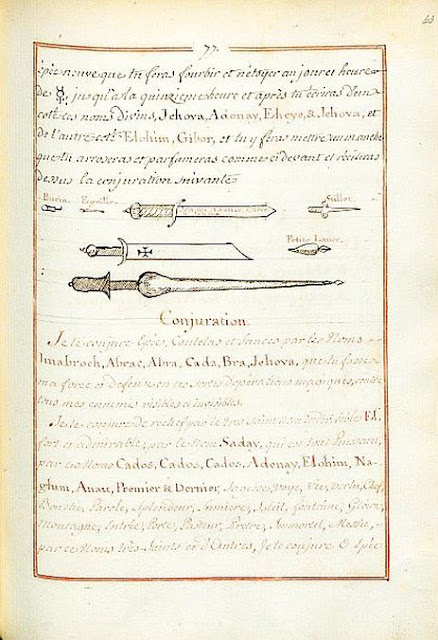 77.
épée neuve que tu feras fourbir et nétoÿer au jour et heure
de ☿, jusqu'a la quinzieme heure et après tu écriras d'un
coté ces noms divins, Jehova, Adonay, Eheye, & Jehova, et
de l'autre coté Elohim, Gibor, et tu y feras mettre un manche
que tu arroseras et parfumeras comme ci devant et réciteras
dessus la conjuration suivante
Burin. Eguille. Stilet.
Petite Lance.
Conjuration.
Je te conjure Epée, Coutelas et Lances par les Noms
Imabroch, Abrac, Abra, Cada, Bra, Jehova, que tu fasses
ma force et défense en ces sortes d'opérations magiques, contre
tous mes ennemis visibles et invisibles.
Je te conjure de rechef par le tres Saint nom indivisible El
fort et admirable; par le Nom Saday, qui est tout Puissant,
par ces Noms Cados, Cados, Cados, Adonay, Elohim, Na-
Anau, Premier & Dernier, Sagesse, Voye, Vie, Vertu, Chef,
Bouche, Parole, Splendeur, Lumiere, Soleil, fontaine, Gloire,
Montagne, Entrée, Porte, Pasteur, Pretre, Immortel, Messie,
par ces Noms très-Saints et d'Autres, Je te conjure O Epée